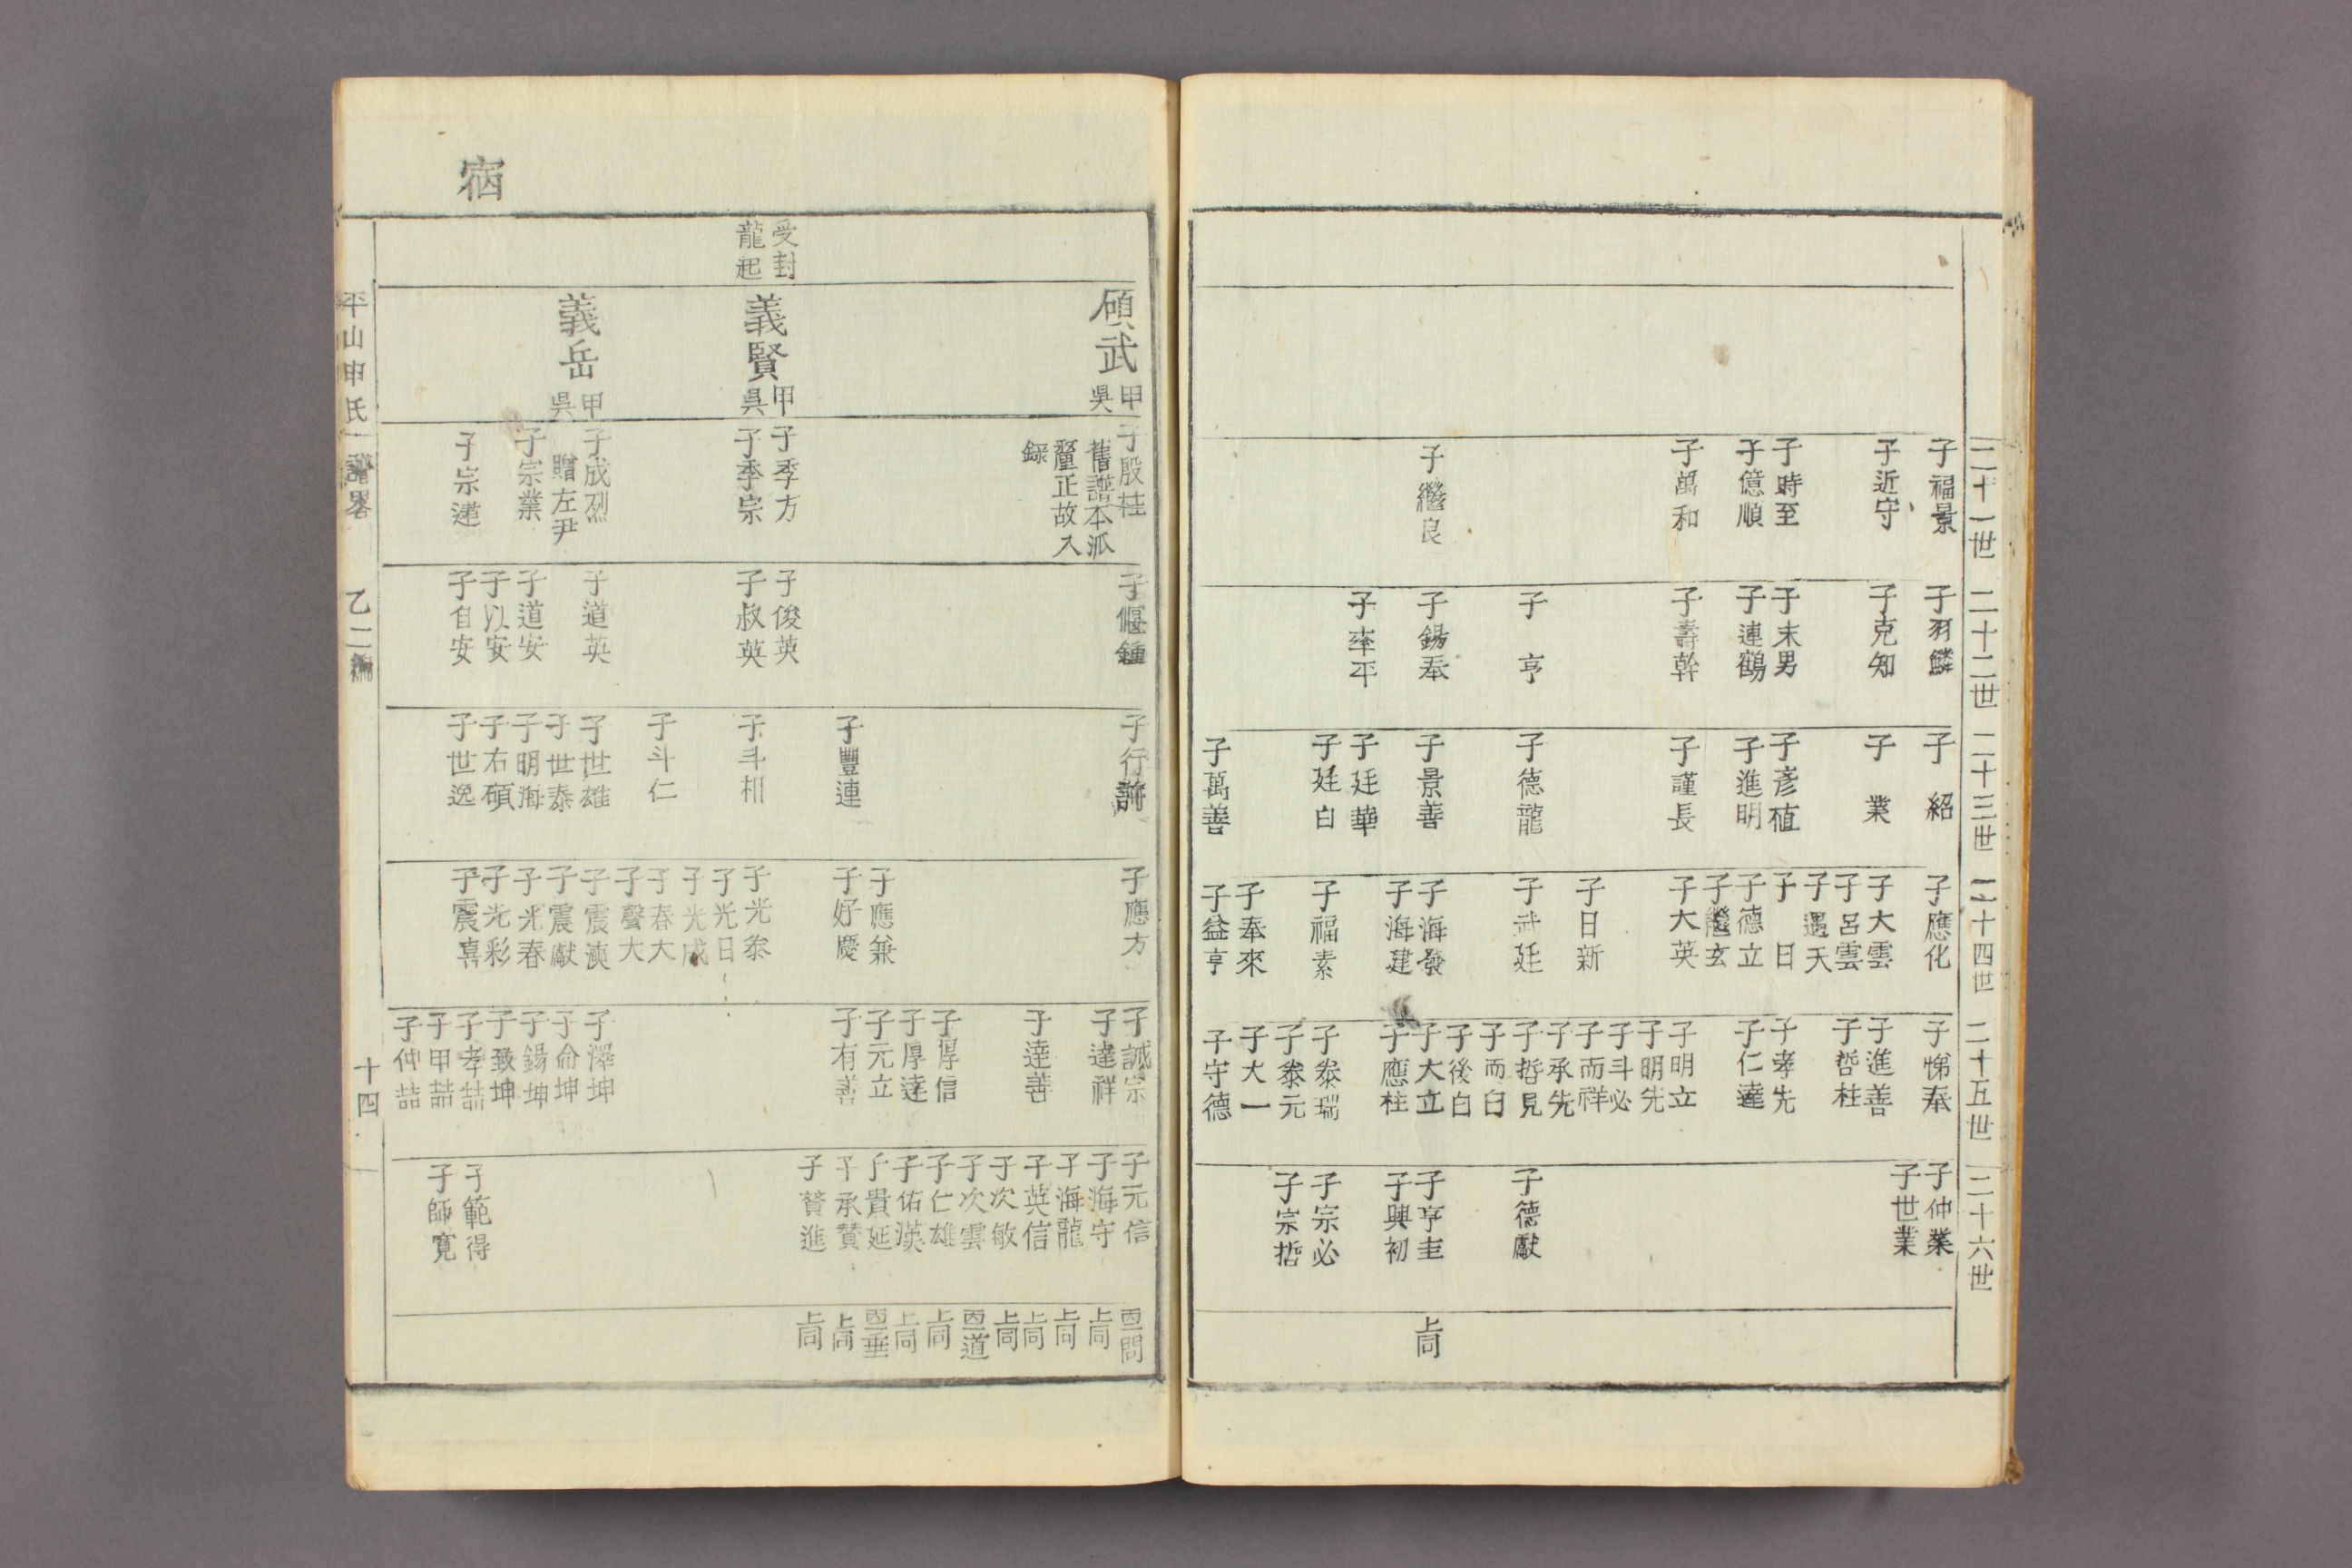 二十一世
子福景
子近守
子時至
子億順
子萬和
子繼良
二十二世
子羽鱗
子克知
子末男
子連鶴
子壽幹
子亨
子錫奉
子率平
二十三世
子紹
子業
子彥植
子進明
子謹長
子德龍
子景善
子廷華
子廷白
子萬善
二十四世
子應化
子大雲
子呂雲
子遇天
子日
子德立
子繼玄
子大英
子日新
子武廷
子海發
子海建
子福素
子奉來
子益亨
二十五世
子悌奉
子進善
子哲柱
子孝先
子仁達
子明立
子明先
子斗必
子而祥
子承先
子哲見
子而白
子後白
子大立
子應柱
子泰瑞
子泰元
子大一
子守德
二十六世
子仲業
子世業
子德獻
子亨圭
子興初
子宗必
子宗哲
上同
宿
受封
龍起
碩武 甲吳
義賢 甲吳
義岳 甲吳
子殷桂
舊譜本派
釐正故入
錄
子季方
子季宗
子成烈
贈左尹
子宗業
子宗運
子偃鍾
子俊英
子叔英
子道英
子道安
子以安
子自安
子行許
子豐連
子斗相
子斗仁
子世雄
子世泰
子明海
子右碩
子世逸
子應方
子應兼
子好慶
子光泰
子光日
子光成
子春大
子聲大
子震演
子震獻
子光春
子光彩
子震喜
子誠宗
子達祥
子達善
子厚信
子厚達
子元立
子有善
子澤坤
子命坤
子錫坤
子致坤
子孝喆
子甲喆
子仲喆
子元信
子海守
子海龍
子英信
子次敏
子次雲
子仁雄
子佑漢
子貴延
子承贊
子贊進
子範得
子師寬
靣問
上同
上同
上同
上同
靣道
上同
上同
靣垂
上同
上同
平山申氏譜畧 乙二編 十四